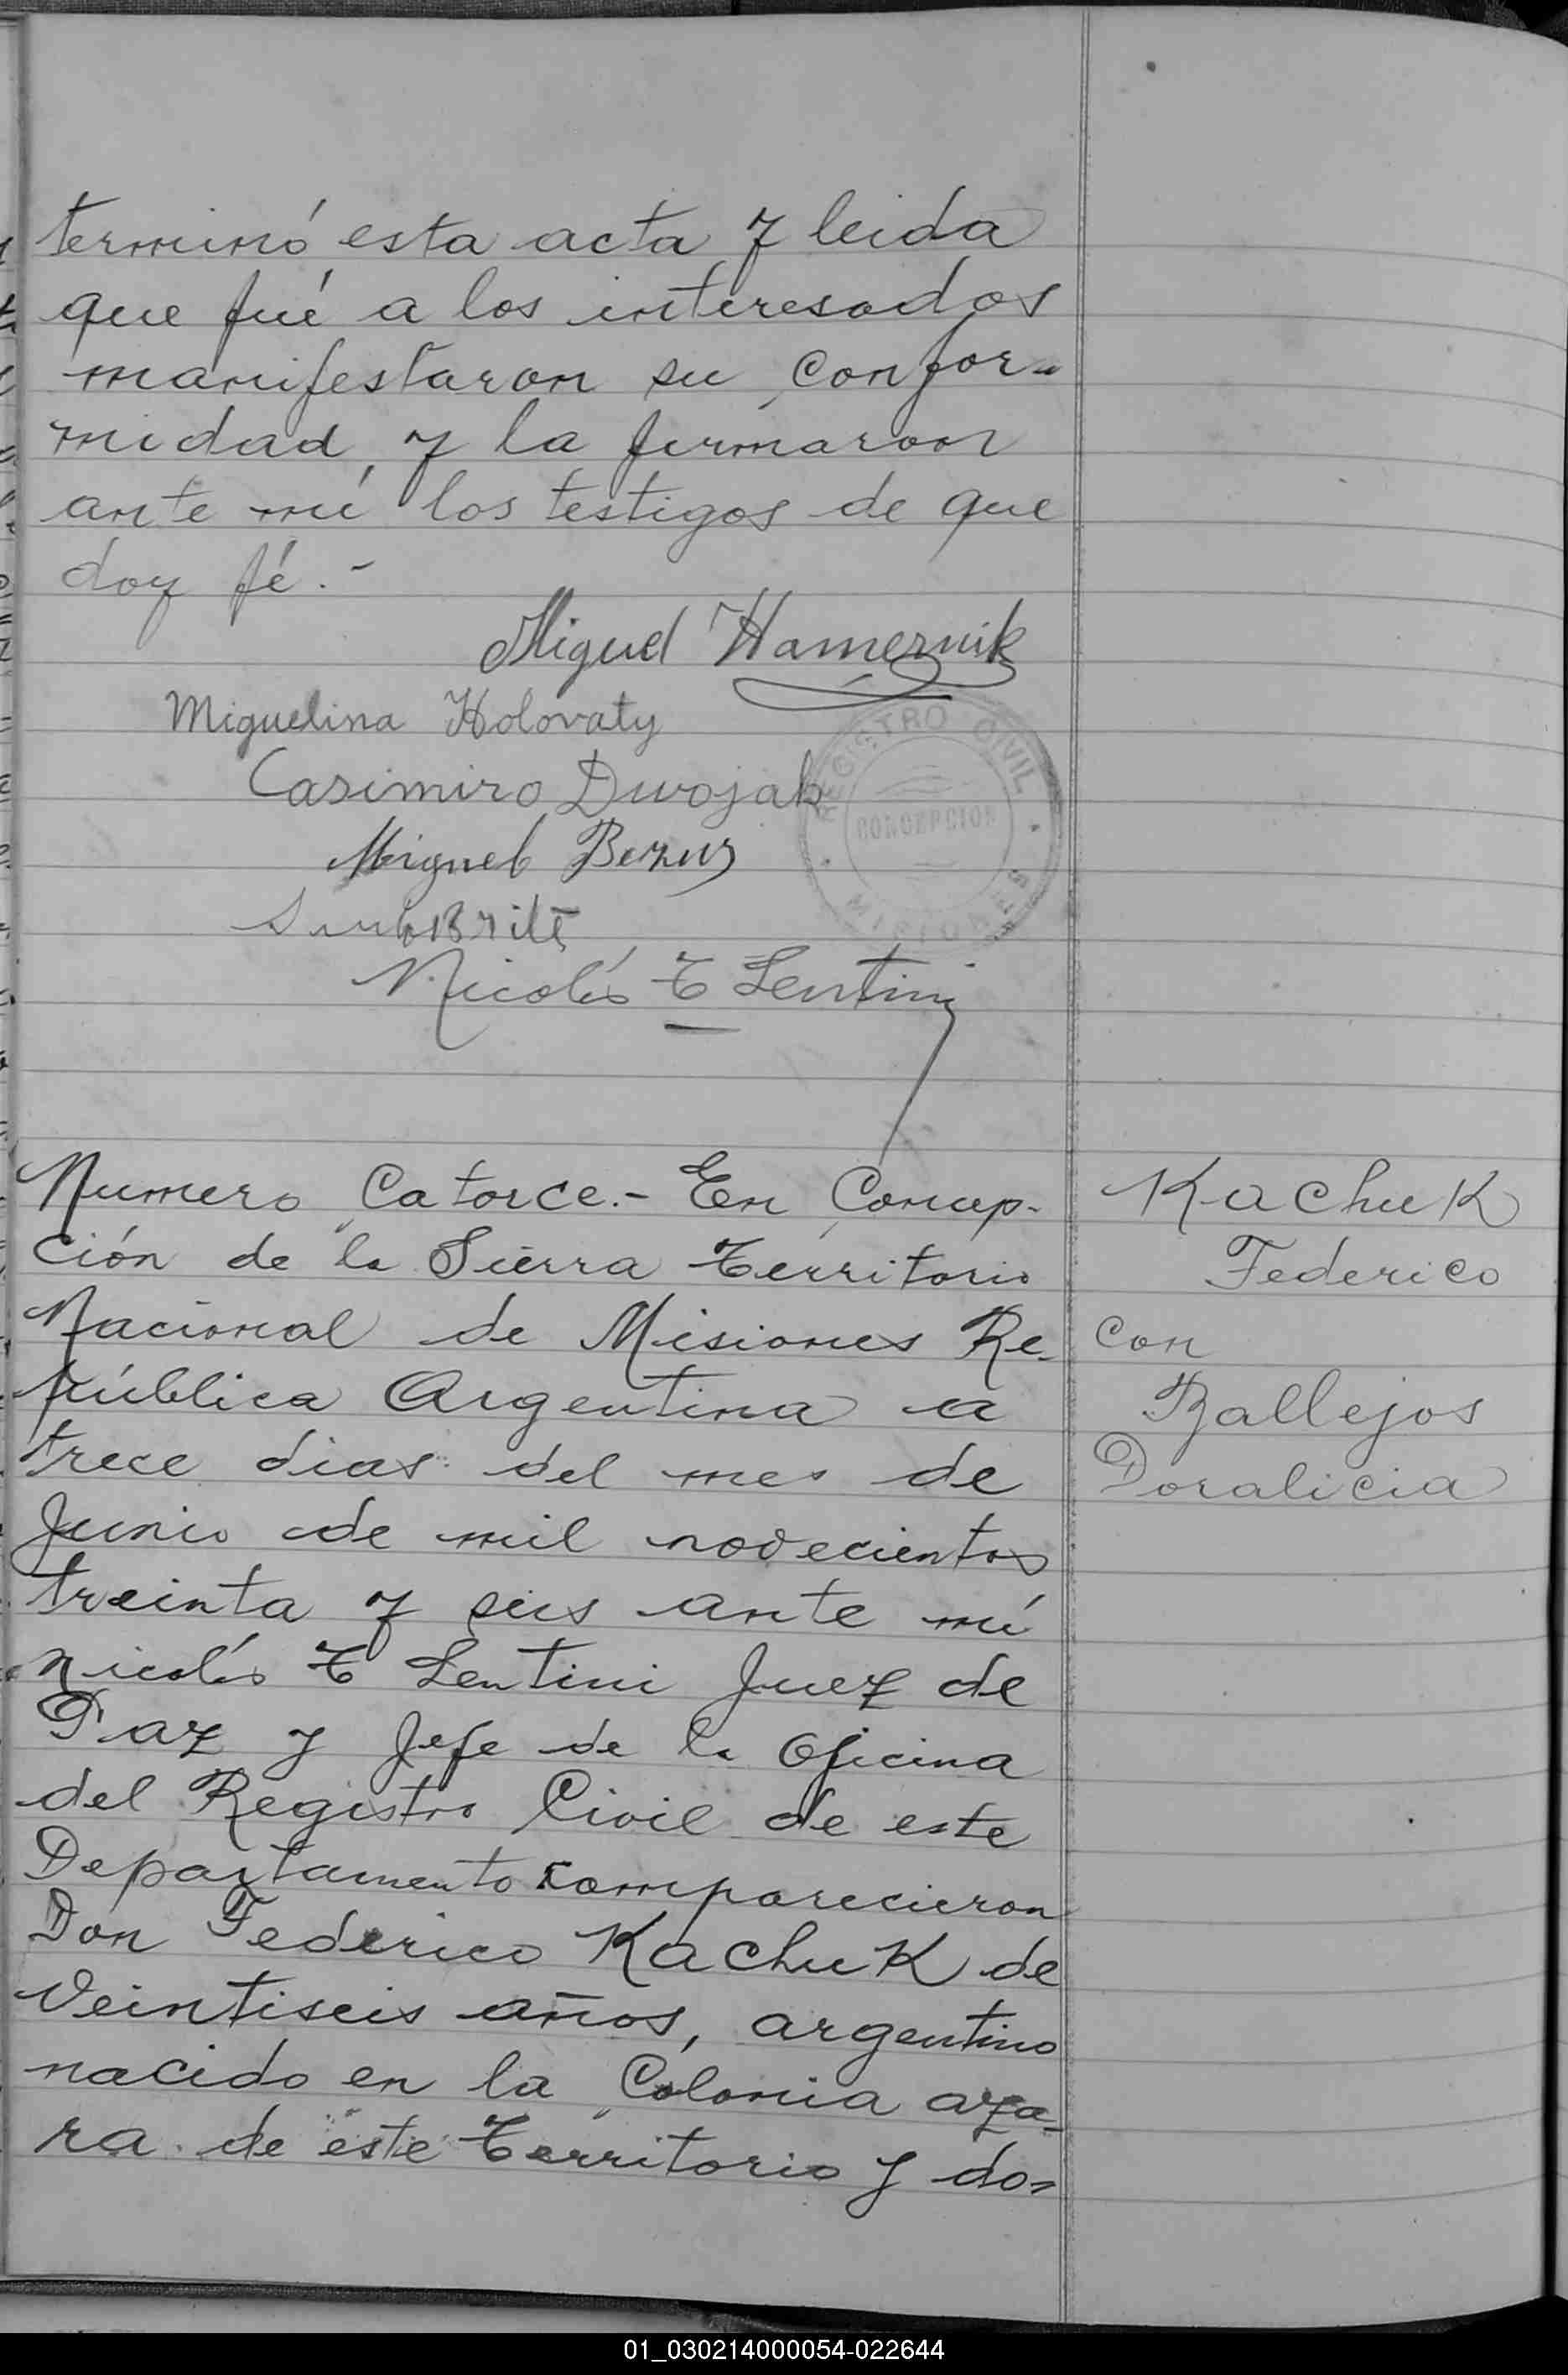 terminó esta acta y leida
que fué a los interesados
manifestaron su confor-
midad, y la firmaron
ante mí los testigos de que
doy fé.-
Miguel Hamernik
Miguelina Holovaty
Casimiro Dwojak
Miguel
Nicolás T Lentini
REGISTRO CIVIL
CONCEPCION
MISIONES
Numero Catorce.- En Concep-
ción de la Sierra Territorio
Nacional de Misiones Re-
pública Argentina a
trece dias del mes de
Junio de mil novecientos
treinta y seis ante mí
Nicolás T Lentini Juez de
Paz y Jefe de la Oficina
del Registro Civil de este
Departamento comparecieron
Don Federico Kachuk de
veintiseis años, argentino
nacido en la Colonia aza-
ra de este Territorio y do-
Kachuk
Federico
con
Ballejos
Doralicia
01_030214000054-022644